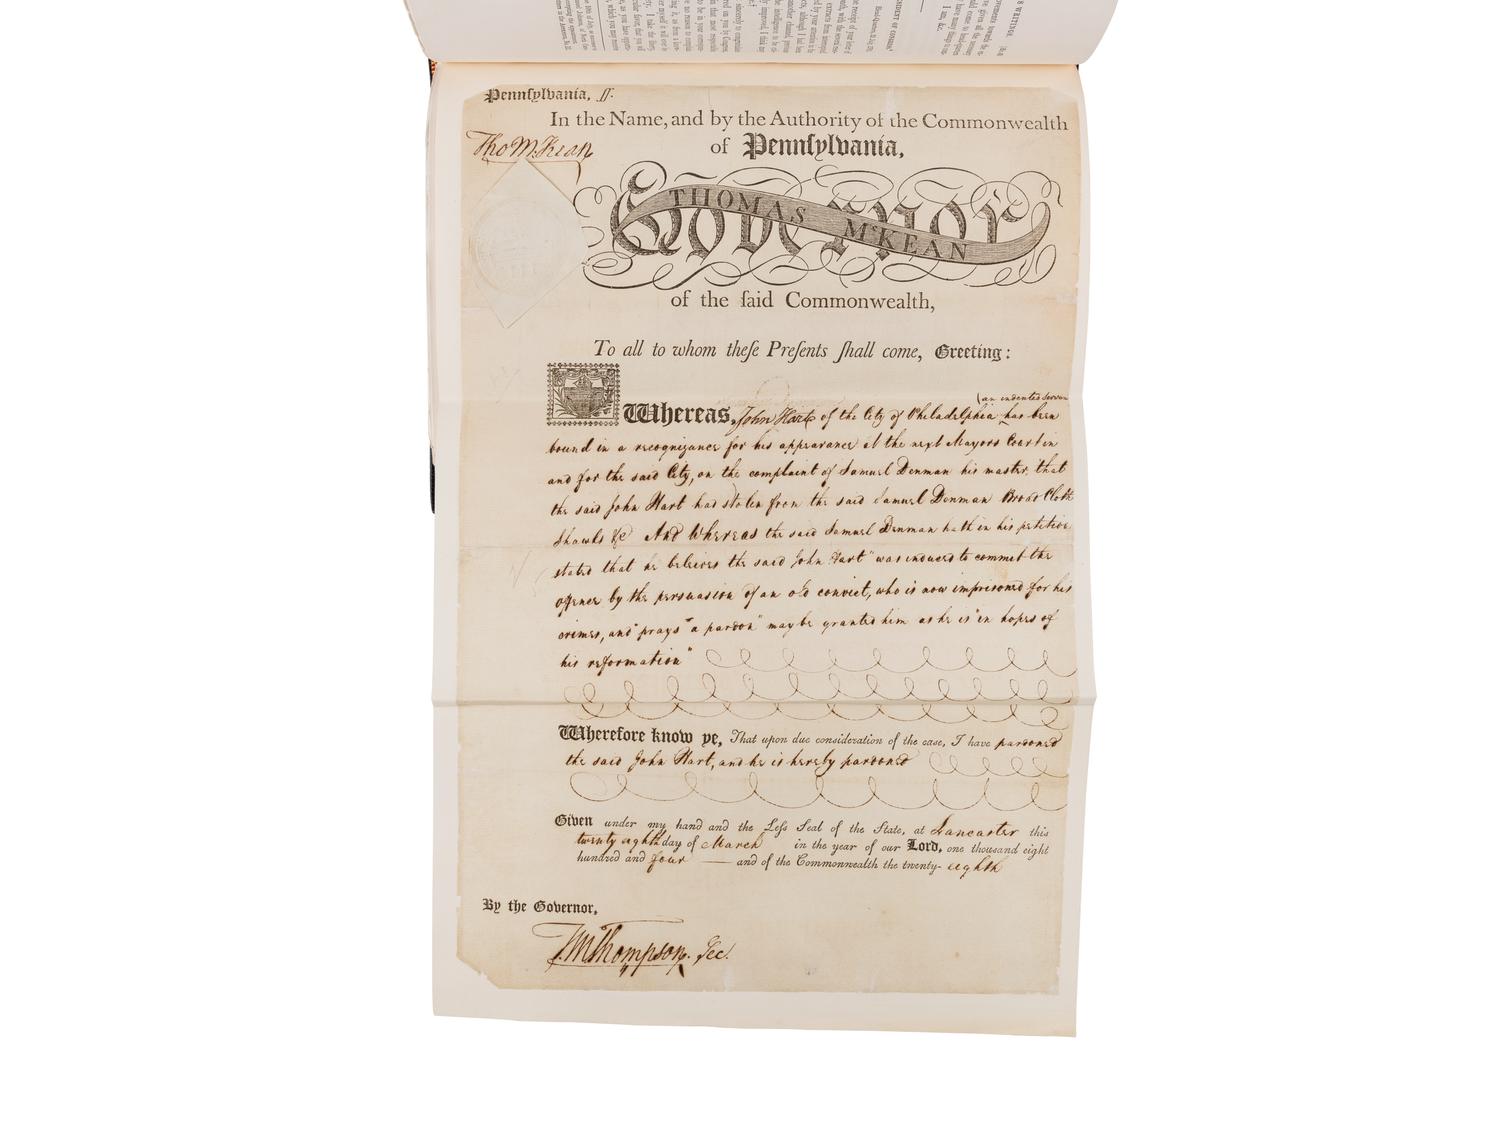 Pennſylvania, ſſ.
In the Name, and by the Authority of the Commonwealth
Tho M:Kean
of Pennſylvania,
Governor
THOMAS McKEAN
of the ſaid Commonwealth,
To all to whom theſe Preſents ſhall come, Greeting:
(an indented Servant
Whereas, John Hart of the City of Philadelphia has been
bound in a recognizance for his appearance at the next Mayors Court in
and for the said City, on the complaint of Samuel Denman his master, that
the said John Hart had stolen from the said Samuel Denman Broad Cloth
Shawls &c And Whereas the said Samuel Denman hath in his petition
stated that he believes the said John Hart "was induced to commit the
offence by the persuasion of an old convict, who is now imprisoned for his
crimes, and" prays "a pardon" may be granted him as he is "in hopes of
his reformation"
Wherefore know ye, That upon due consideration of the case, I have pardoned
the said John Hart, and he is hereby pardoned
Given under my hand and the Leſs Seal of the State, at Lancaster this
twenty eighth day of March in the year of our Lord, one thousand eight
hundred and four — and of the Commonwealth the twenty- eighth
By the Governor,
T.M. Thompson. Sec.